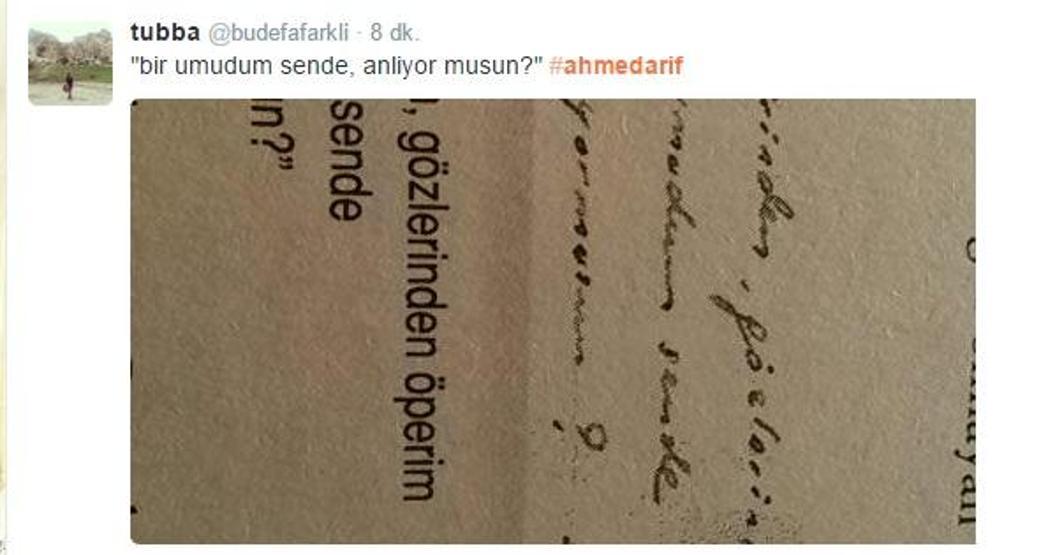 tubba @budefafarkli · 8 dk.
"bir umudum sende, anliyor musun?" #ahmedarif
, gözlerinden öperim
sende
in?”
rinden, gözlerin
mudum sende
yormusun?